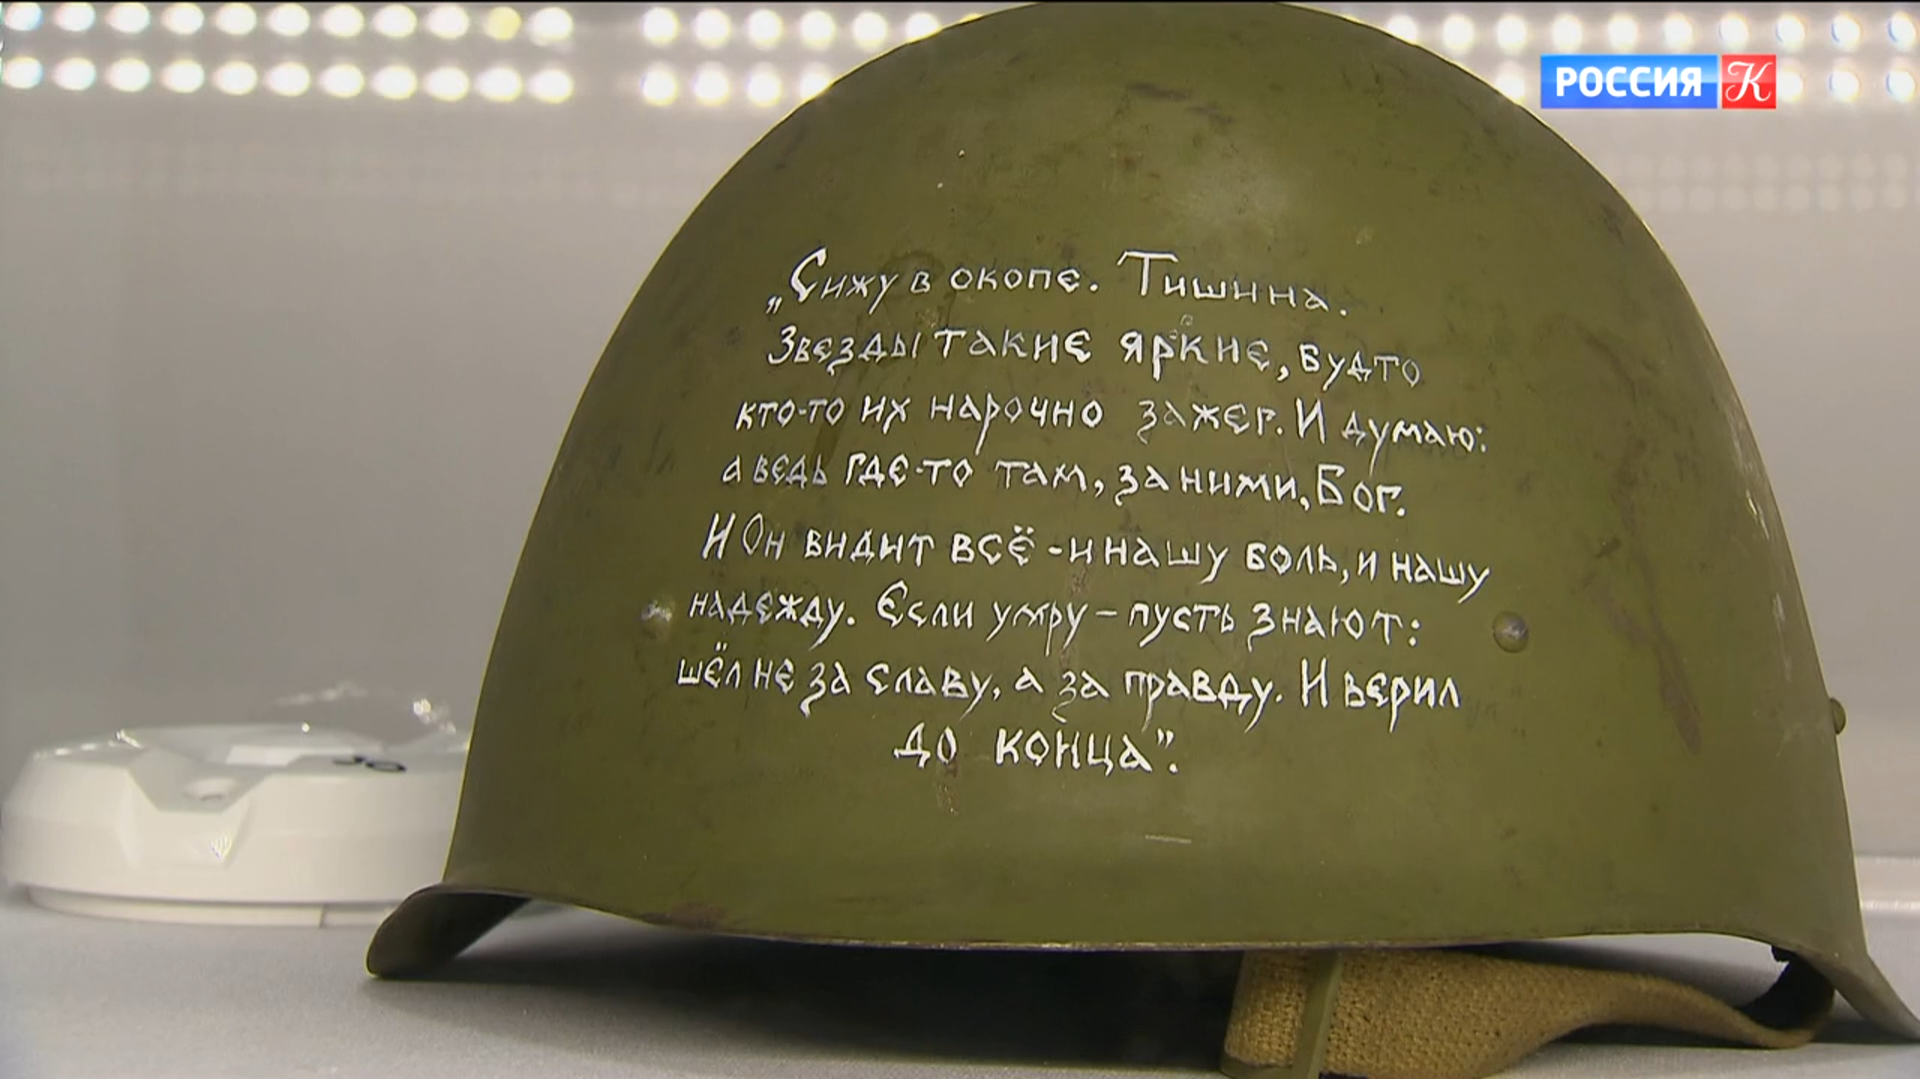 РОССИЯ К
„Сижу в окопе. Тишина.
Звезды такие яркие, будто
кто-то их нарочно зажег. И думаю:
а ведь где-то там, за ними, Бог.
И Он видит всё - и нашу боль, и нашу
надежду. Если умру - пусть знают:
шёл не за славу, а за правду. И верил
до конца".